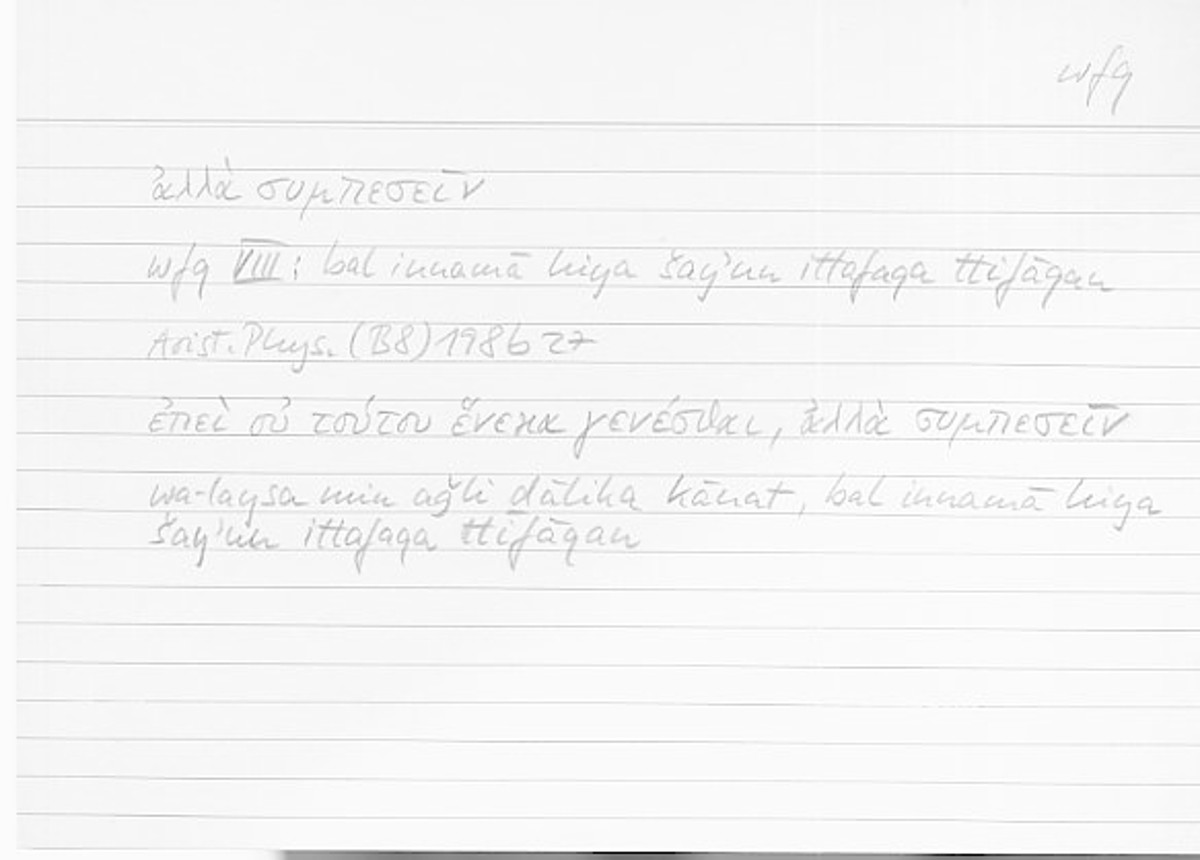 wfq
ἀλλὰ συμπεσεῖν
wfq VIII: bal innamā hiya šay'un ittafaqa ttifāqan
Arist. Phys. (B8) 198b27
ἐπεὶ οὐ τούτου ἕνεκα γενέσθαι, ἀλλὰ συμπεσεῖν
wa-laysa min aǧli ḏālika kānat, bal innamā hiya
šay'un ittafaqa ttifāqan